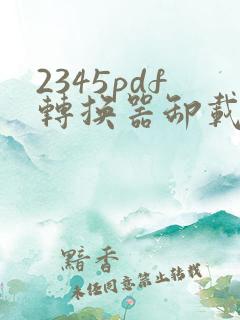 2345pdf
轉換器卸載
黯香
未经同意禁止转载